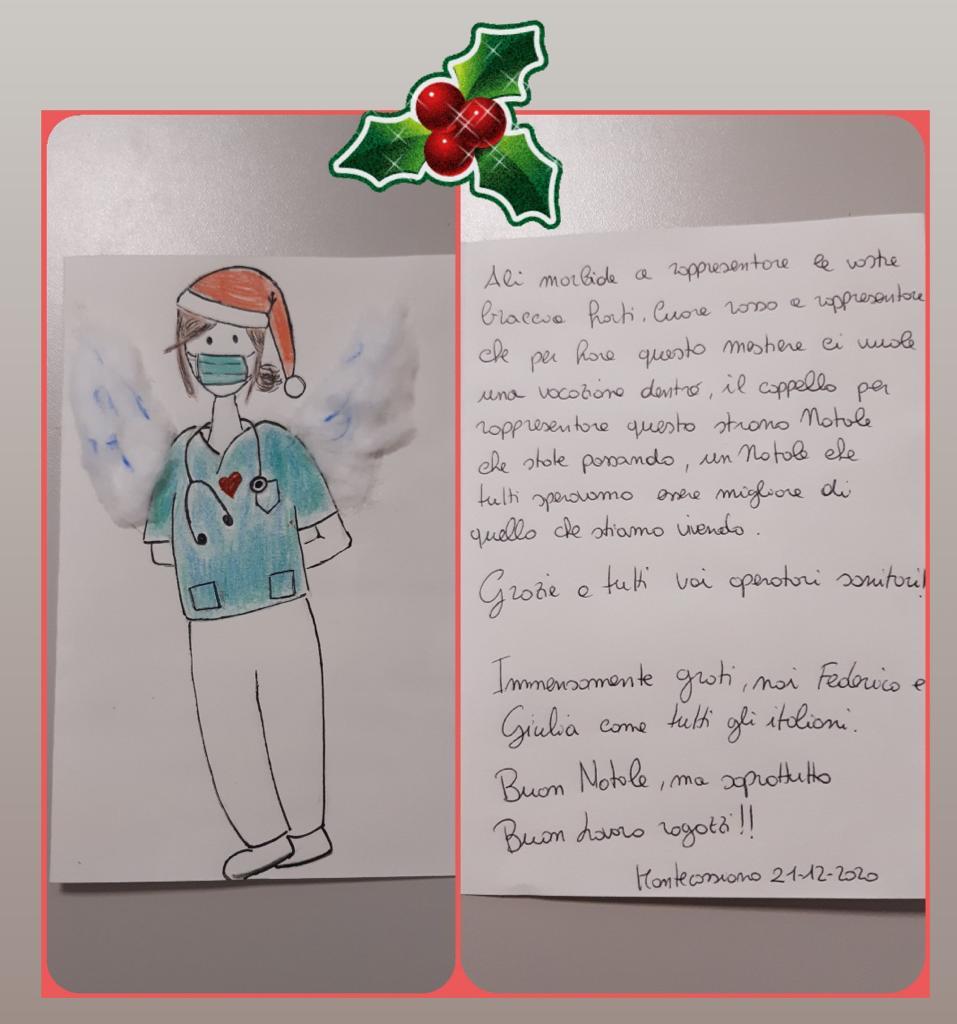 Ali morbide a rappresentare le vostre
braccia forti. Cuore rosso a rappresentare
che per fare questo mestiere ci vuole
una vocazione dentro, il cappello per
rappresentare questo strano Natale
che state passando, un Natale che
tutti speravamo essere migliore di
quello che stiamo vivendo.
Grazie a tutti voi operatori sanitari!
Immensamente grati, noi Federico e
Giulia come tutti gli italiani.
Buon Natale, ma soprattutto
Buon Lavoro ragazzi!!
Montecassiano 21-12-2020